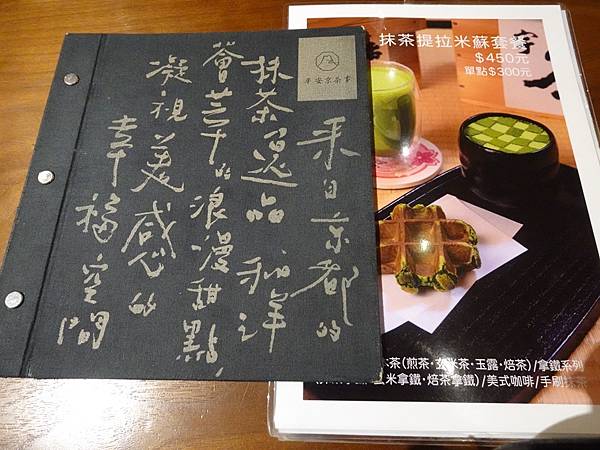 平安京茶事
來自京都的
抹茶逸品
薈芸的浪漫甜點,
凝視美感的
幸福空間
抹茶提拉米蘇套餐
$450元
單點$300元
茶(煎茶·玄米茶·玉露·焙茶)/拿鐵系列
玄米拿鐵·焙茶拿鐵)/美式咖啡/手刷抹茶